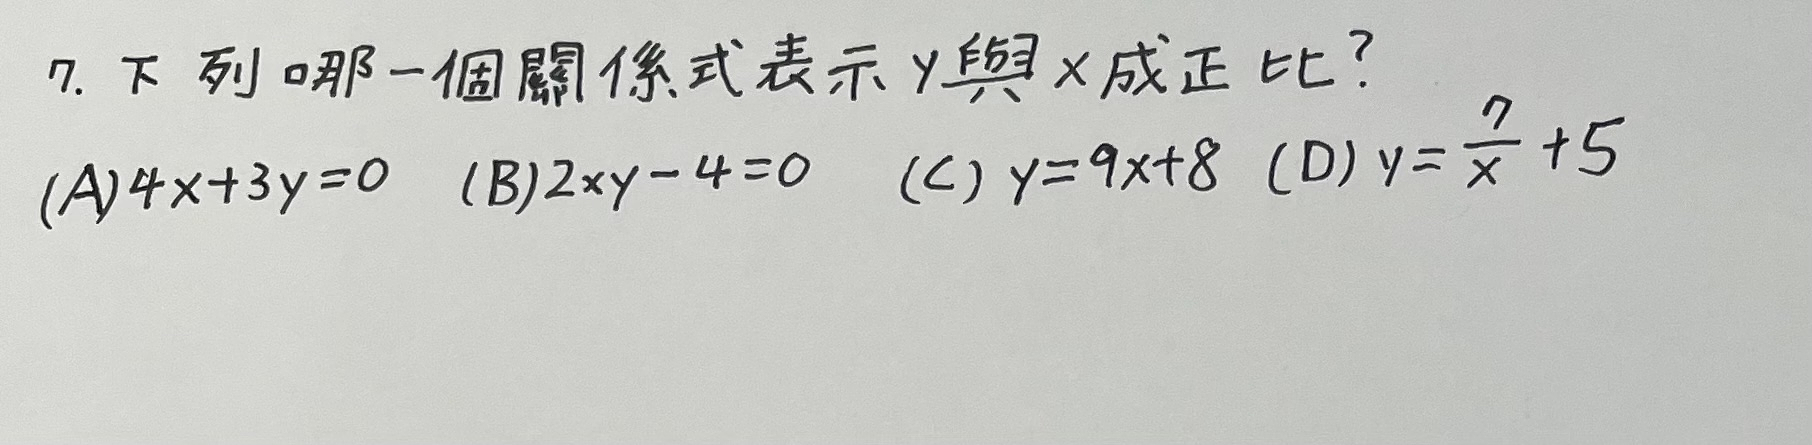 7. 下列哪一個關係式表示y與x成正比?
(A)4x+3y=0 (B)2xy-4=0 (C) y=9x+8 (D) y=7/x+5